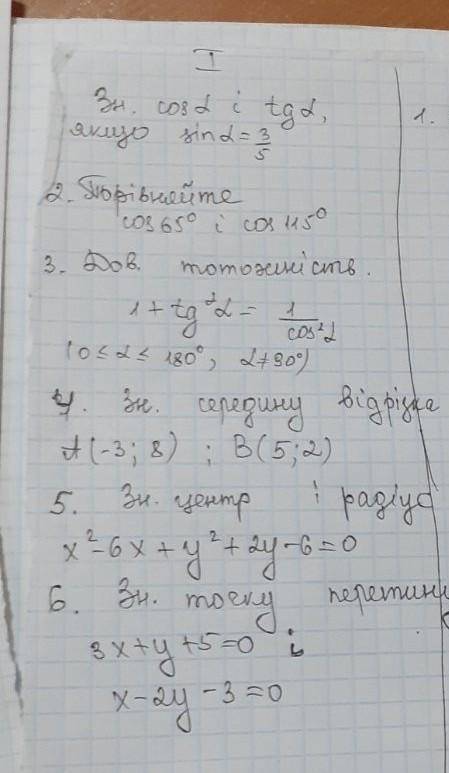 I
Зн. cos α і tg α, 1.
якщо sin α = 3/5
2. Порівняйте
cos 65° і cos 115°
3. Дов. тотожність.
1 + tg²α = 1/cos²α
(0 ≤ α ≤ 180°, α ≠ 90°)
4. Зн. середину відрізка
A(-3; 8) ; B(5; 2)
5. Зн. центр і радіус
x² - 6x + y² + 2y - 6 = 0
6. Зн. точку перетину
3x + y + 5 = 0 і
x - 2y - 3 = 0